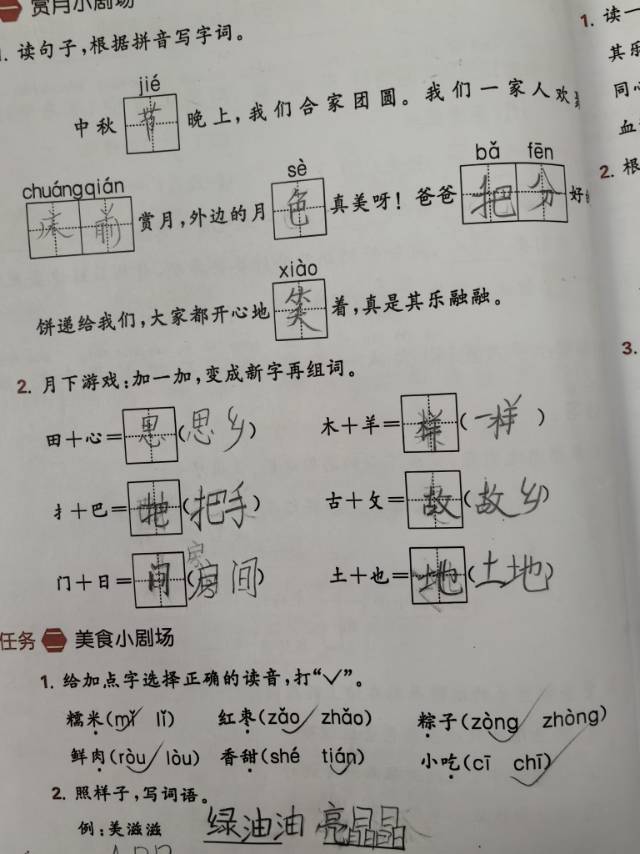 一 赏月小剧场
1. 读句子,根据拼音写字词。
jié
中秋 节 晚上,我们合家团圆。我们一家人欢
chuáng qián sè bǎ fēn
床 前 赏月,外边的月 色 真美呀!爸爸 把 分 好
xiào
饼递给我们,大家都开心地 笑 着,真是其乐融融。
2. 月下游戏:加一加,变成新字再组词。
田+心= 思 (思乡) 木+羊= 样 (一样)
扌+巴= (把手) 古+攵= 故 (故乡)
门+日= 间 (房间) 土+也= 地 (土地)
任务 二 美食小剧场
1. 给加点字选择正确的读音,打“✓”。
糯米(mǐ✓ lǐ) 红枣(zǎo✓ zhǎo) 粽子(zòng✓ zhòng)
鲜肉(ròu✓ lòu) 香甜(shé tián✓) 小吃(cī chī✓)
2. 照样子,写词语。
例:美滋滋 绿油油 亮晶晶
1. 读一
其乐
同心
血
2. 根
3.